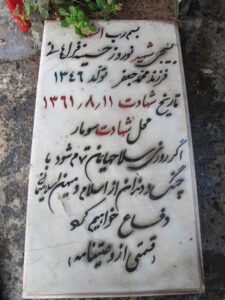 بسم رب الشهدا
بسیجی شهید نوروز حسینی فراهانی
فرزند محمد جعفر تولد ۱۳۴۶
تاریخ شهادت ۱۳۶۱٫۸٫۱۱
محل شهادت سومار
اگر روزی سلاحهایمان تمام شود با
چنگ و دندان از اسلام و میهن اسلامی
دفاع خواهیم کرد
(قسمتی از وصیتنامه)